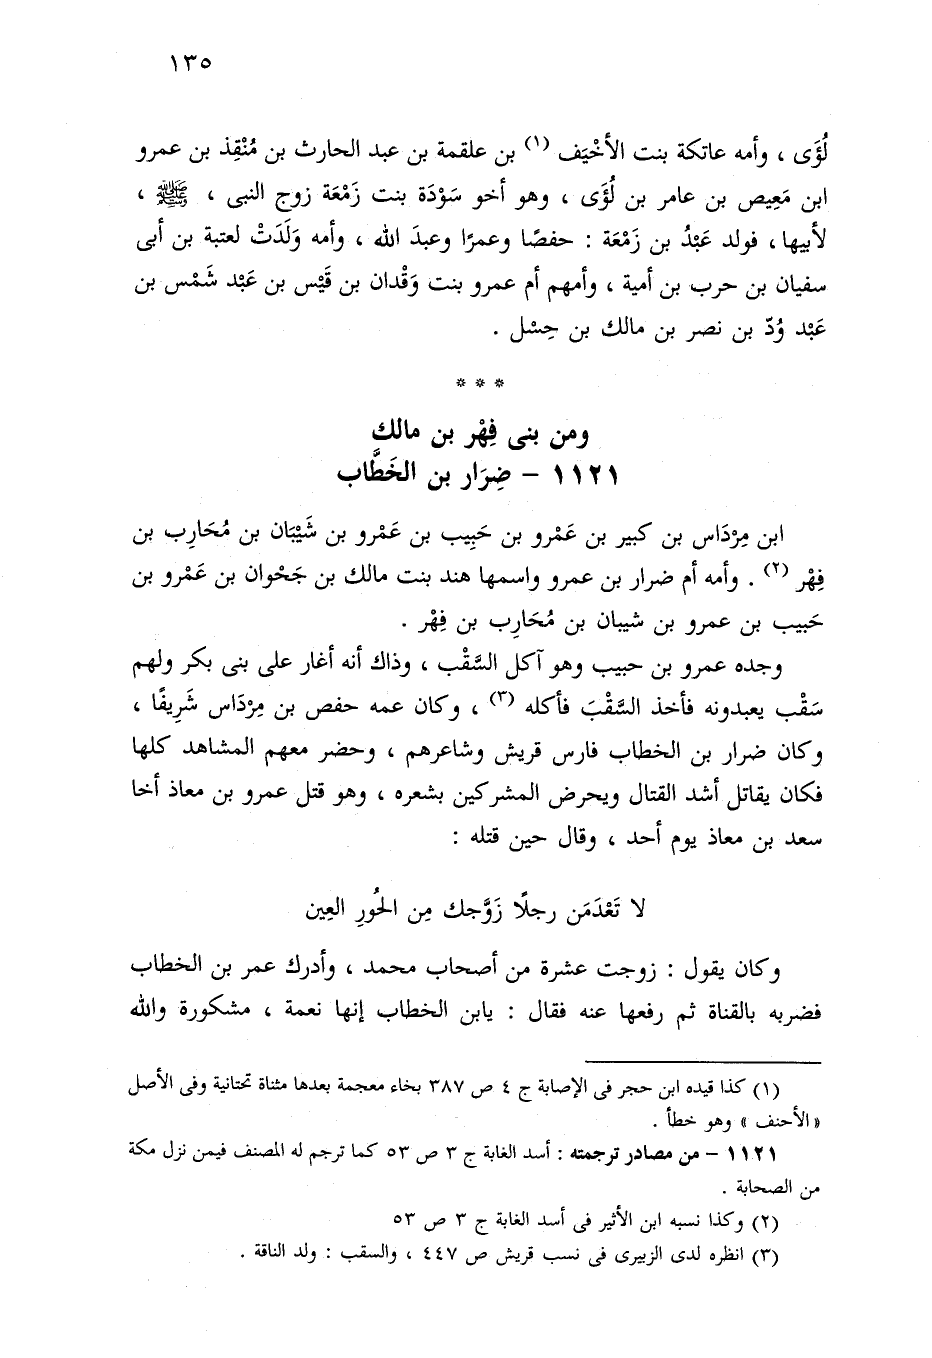 ١٣٥
لُؤَى ، وأمه عاتكة بنت الأخْيَف (١) بن علقمة بن عبد الحارث بن مُنْقِذ بن عمرو
ابن مَعِيص بن عامر بن لُؤَى ، وهو أخو سَوْدَة بنت زَمْعَة زوج النبى ، ﷺ ،
لأبيها ، فولد عَبْدُ بن زَمْعَة : حفصًا وعمرًا وعبدَ الله ، وأمه وَلَدَتْ لعتبة بن أبى
سفيان بن حرب بن أمية ، وأمهم أم عمرو بنت وَقْدان بن قَيْس بن عَبْد شَمْس بن
عَبْد وُدّ بن نصر بن مالك بن حِسْل .
* * *
ومن بنى فِهْر بن مالك
١١٢١ - ضِرَار بن الخَطَّاب
ابن مِرْدَاس بن كبير بن عَمْرو بن حَبِيب بن عَمْرو بن شَيْبَان بن مُحَارِب بن
فِهْر (٢) . وأمه أم ضرار بن عمرو واسمها هند بنت مالك بن جَحْوان بن عَمْرو بن
حَبيب بن عمرو بن شيبان بن مُحَارِب بن فِهْر .
وجده عمرو بن حبيب وهو آكل السَّقْب ، وذاك أنه أغار على بنى بكر ولهم
سَقْب يعبدونه فأخذ السَّقْبَ فأكله (٣) ، وكان عمه حفص بن مِرْدَاس شَرِيفًا ،
وكان ضرار بن الخطاب فارس قريش وشاعرهم ، وحضر معهم المشاهد كلها
فكان يقاتل أشد القتال ويحرض المشركين بشعره ، وهو قتل عمرو بن معاذ أخا
سعد بن معاذ يوم أحد ، وقال حين قتله :
لا تَعْدَمَن رجلًا زَوَّجك مِن الحُورِ العِين
وكان يقول : زوجت عشرة من أصحاب محمد ، وأدرك عمر بن الخطاب
فضربه بالقناة ثم رفعها عنه فقال : يابن الخطاب إنها نعمة ، مشكورة والله
(١) كذا قيده ابن حجر فى الإصابة ج ٤ ص ٣٨٧ بخاء معجمة بعدها مثناة تحتانية وفى الأصل
«الأحنف» وهو خطأ .
١١٢١ - من مصادر ترجمته : أسد الغابة ج ٣ ص ٥٣ كما ترجم له المصنف فيمن نزل مكة
من الصحابة .
(٢) وكذا نسبه ابن الأثير فى أسد الغابة ج ٣ ص ٥٣
(٣) انظره لدى الزبيرى فى نسب قريش ص ٤٤٧ ، والسقب : ولد الناقة .